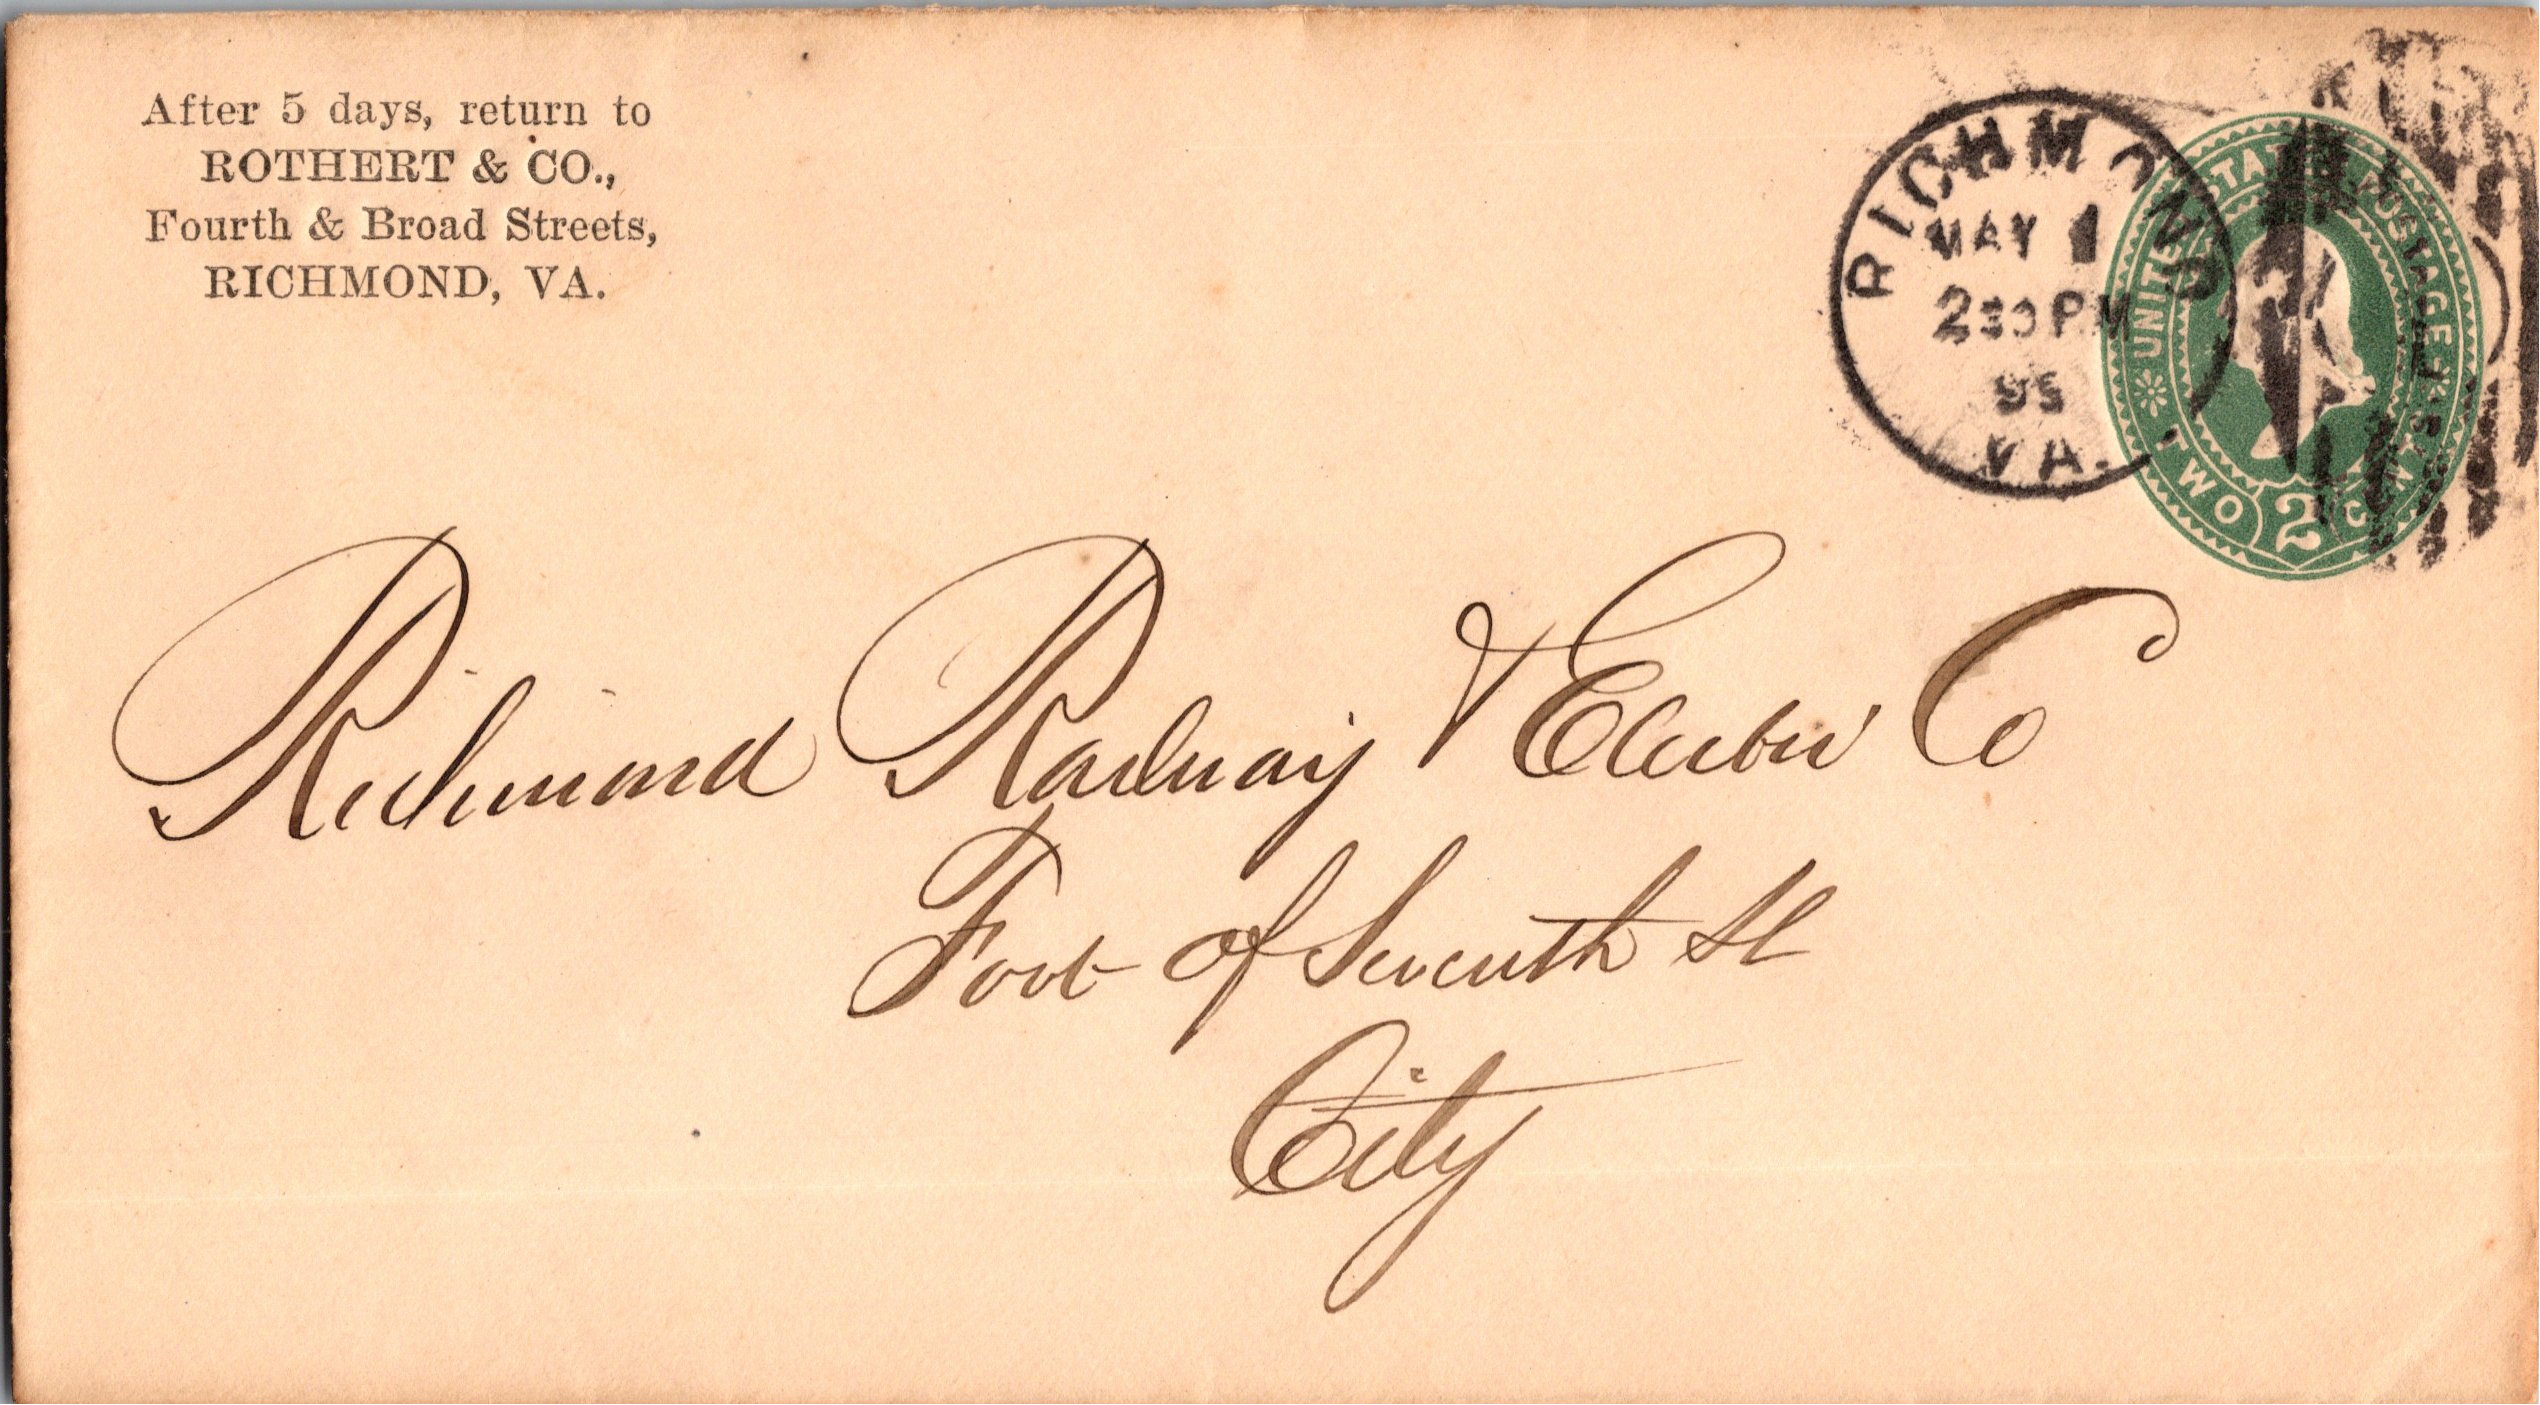 After 5 days, return to
ROTHERT & CO.,
Fourth & Broad Streets,
RICHMOND, VA.
RICHMOND
MAY 1
230PM
95
VA.
UNITED STATES POSTAGE
TWO 2 CENTS
Richmond Railway & Electric Co
Foot of Seventh St
City